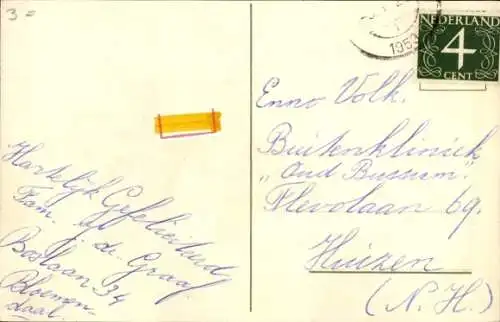 3 =
1953
NEDERLAND
4
CENT
Hartelijk Gefeliciteerd
Fam.
de Graaf
Boslaan 34
Bloemen-
daal.
Enno Volk.
Buitenkliniek
"Oud Bussum".
Flevolaan 69.
Huizen
(N.H.)